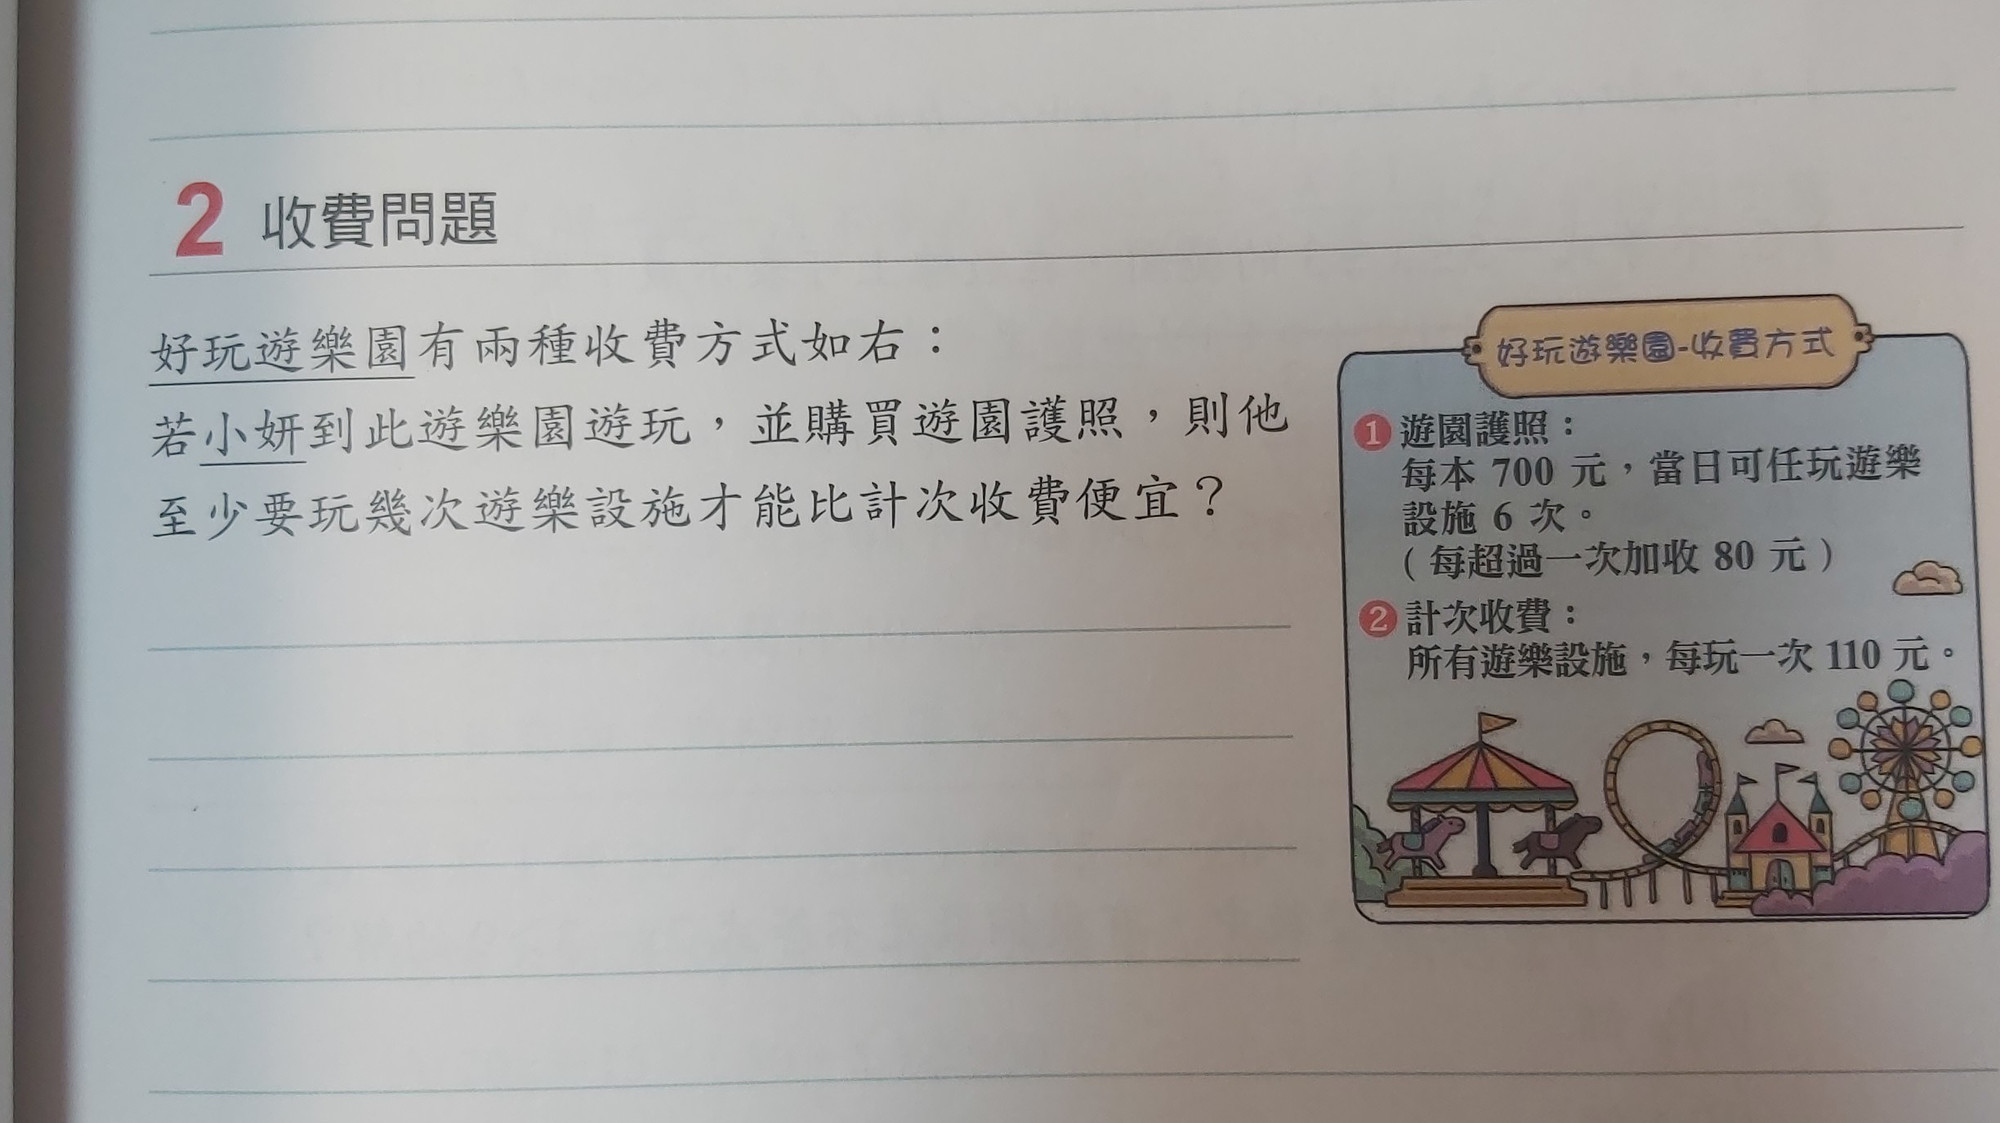 2 收費問題
好玩遊樂園有兩種收費方式如右：
若小妍到此遊樂園遊玩，並購買遊園護照，則他
至少要玩幾次遊樂設施才能比計次收費便宜？
好玩遊樂園-收費方式
1 遊園護照：
每本 700 元，當日可任玩遊樂
設施 6 次。
（每超過一次加收 80 元）
2 計次收費：
所有遊樂設施，每玩一次 110 元。